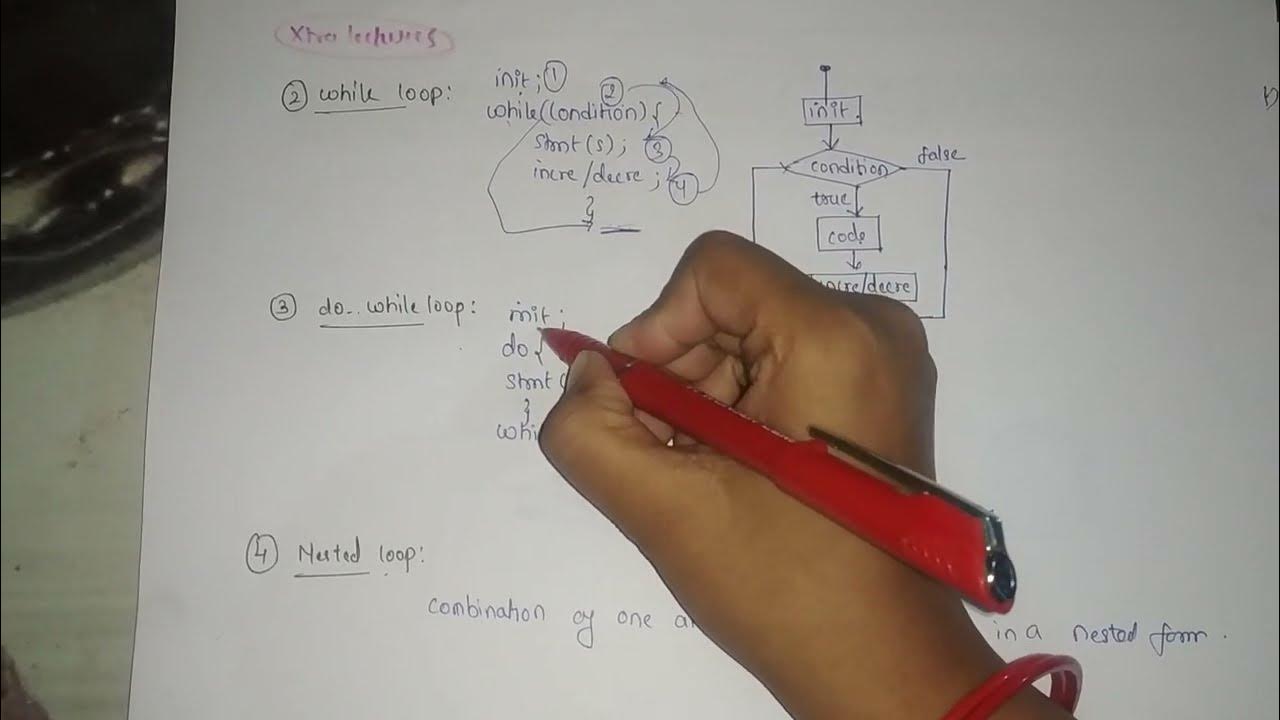 Xtra lectures
② while loop:
init; ①
while(condition){ ②
stmt(s); ③
incre/decre; ④
}
init
condition
false
true
code
incre/decre
③ do..while loop:
init;
do{
stmt(
}
④ Nested loop:
combination of one
in a nested form.